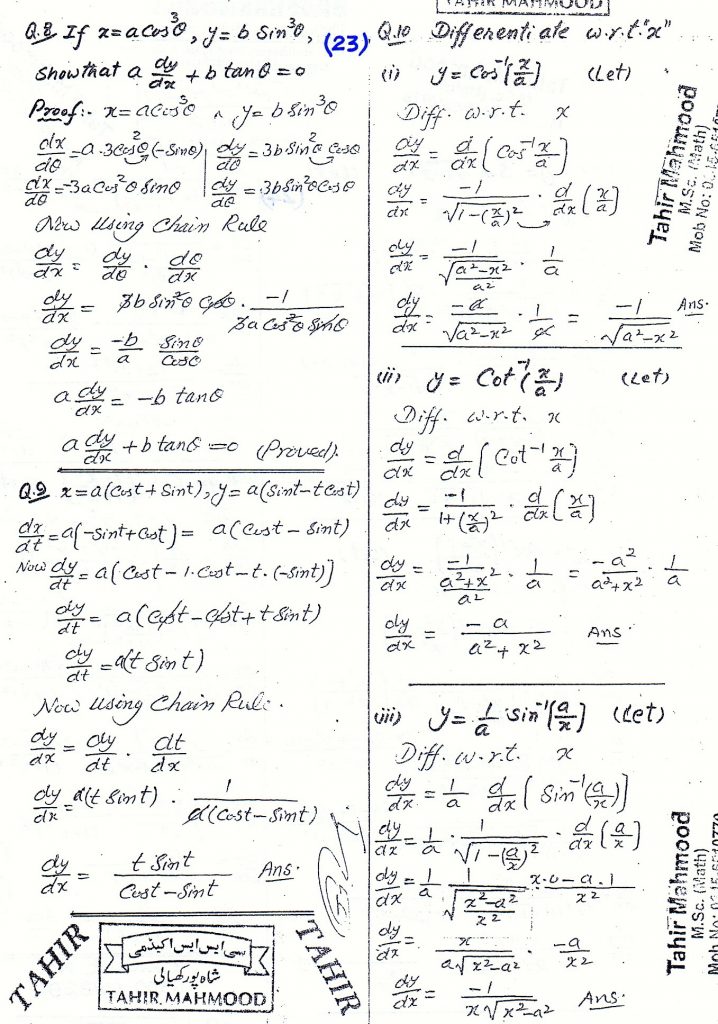 TAHIR MAHMOOD
(23)
Q.8 If x = a Cos³θ, y = b Sin³θ,
Show that a dy/dx + b tanθ = 0
Proof:- x = a Cos³θ ∧ y = b Sin³θ
dx/dθ = a·3Cos²θ(-Sinθ) | dy/dθ = 3b Sin²θ Cosθ
dx/dθ = -3a Cos²θ Sinθ | dy/dθ = 3b Sin²θ Cosθ
Now Using Chain Rule
dy/dx = dy/dθ · dθ/dx
dy/dx = 3b Sin²θ Cosθ · -1/(3a Cos²θ Sinθ)
dy/dx = -b/a Sinθ/Cosθ
a dy/dx = -b tanθ
a dy/dx + b tanθ = 0 (Proved).
Q.9 x = a(Cost + Sint), y = a(Sint - t Cost)
dx/dt = a(-Sint + Cost) = a(Cost - Sint)
Now dy/dt = a[Cost - 1·Cost - t·(-Sint)]
dy/dt = a(Cost - Cost + t Sint)
dy/dt = a(t Sint)
Now Using Chain Rule.
dy/dx = dy/dt · dt/dx
dy/dx = a(t Sint) · 1/(a(Cost - Sint))
dy/dx = t Sint/(Cost - Sint) Ans.
TAHIR
سی ایس ایس اکیڈمی
شاہ پور کھیالی
TAHIR MAHMOOD
TAHIR
Q.10 Differentiate w.r.t. "x"
(i) y = Cos⁻¹[x/a] (Let)
Diff. w.r.t. x
dy/dx = d/dx [Cos⁻¹ x/a]
dy/dx = -1/√(1-(x/a)²) · d/dx [x/a]
dy/dx = -1/√((a²-x²)/a²) · 1/a
dy/dx = -a/√(a²-x²) · 1/a = -1/√(a²-x²) Ans.
(ii) y = Cot⁻¹(x/a) (Let)
Diff. w.r.t. x
dy/dx = d/dx [Cot⁻¹ x/a]
dy/dx = -1/(1+(x/a)²) · d/dx [x/a]
dy/dx = -1/((a²+x²)/a²) · 1/a = -a²/(a²+x²) · 1/a
dy/dx = -a/(a²+x²) Ans.
(iii) y = 1/a Sin⁻¹[a/x] (Let)
Diff. w.r.t. x
dy/dx = 1/a d/dx [Sin⁻¹(a/x)]
dy/dx = 1/a · 1/√(1-(a/x)²) · d/dx [a/x]
dy/dx = 1/a 1/√((x²-a²)/x²) (x·0-a·1)/x²
dy/dx = x/(a√(x²-a²)) · -a/x²
dy/dx = -1/(x√(x²-a²)) Ans.
Tahir Mahmood
M.Sc. (Math)
Mob No:
Tahir Mahmood
M.Sc. (Math)
Mob No: